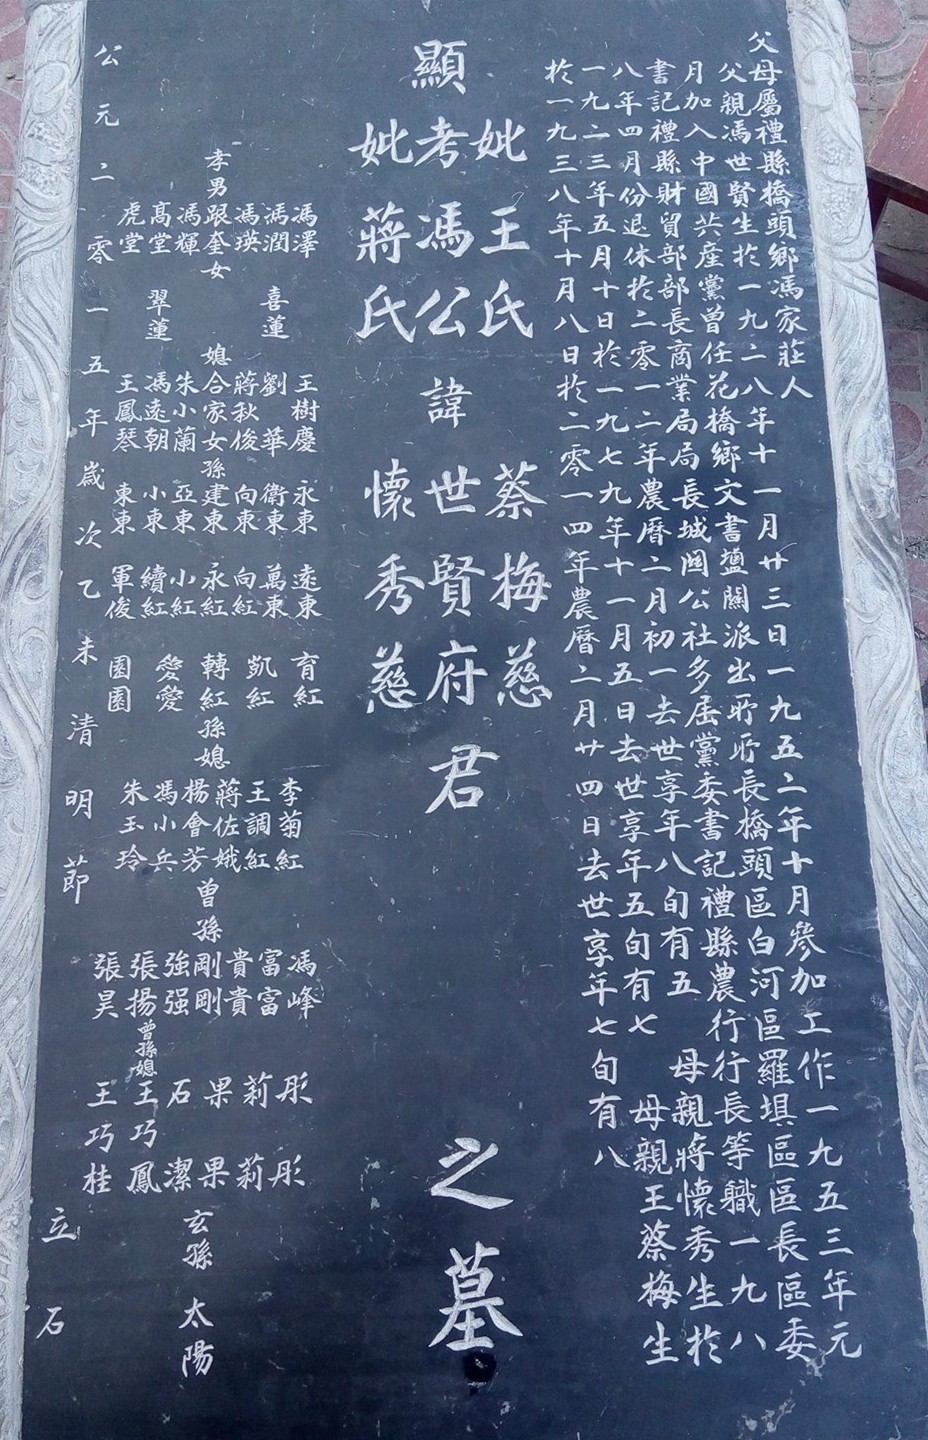 父母屬禮縣橋頭鄉馮家莊人
父親馮世賢生於一九二八年十一月廿三日一九五二年十月參加工作一九五三年元
月加入中國共産黨曾任花橋鄉文書鹽關派出所所長橋頭區白河區羅埧區區長區委
書記禮縣財貿部部長商業局局長城關公社多屆黨委書記禮縣農行行長等職一九八
八年四月份退休於二零一二年農曆二月初一去世享年八旬有五 母親蔣懷秀生於
一九二三年五月十日於一九七九年十一月五日去世享年五旬有七 母親王蔡梅生
於一九三八年十月八日於二零一四年農曆二月廿四日去世享年七旬有八
顯
妣王氏蔡梅慈
考馮公諱世賢府
妣蔣氏懷秀慈
君之墓
孝男
馮澤
馮潤
馮瑛
跟奎
馮輝
高堂
虎堂
女
喜蓮
翠蓮
媳
王樹慶
劉華
蔣秋俊
合家女
朱小蘭
馮遠朝
王鳳琴
孫
永東
衛東
向東
建東
亞東
小東
東東
遠東
萬東
向紅
永紅
小紅
續紅
軍俊
育紅
凱紅
轉紅
愛愛
園園
孫媳
李菊紅
王調紅
蔣佐娥
楊會芳
馮小兵
朱玉玲
曾孫
馮峰
富富
貴貴
剛剛
強強
張揚
張昊
曾孫媳
彤彤
莉莉
果果
石潔
王巧鳳
王巧桂
玄孫
太陽
公元二零一五年歲次乙未清明節 立石